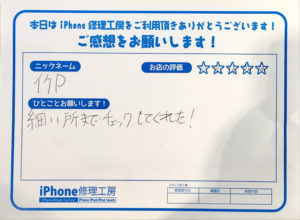 本日は iPhone 修理工房をご利用頂きありがとうございます!
ご感想をお願いします!
ニックネーム
イケP
お店の評価 ☆☆☆☆☆
ひとことお願いします!
細い所までチェックしてくれた!
iPhone修理工房